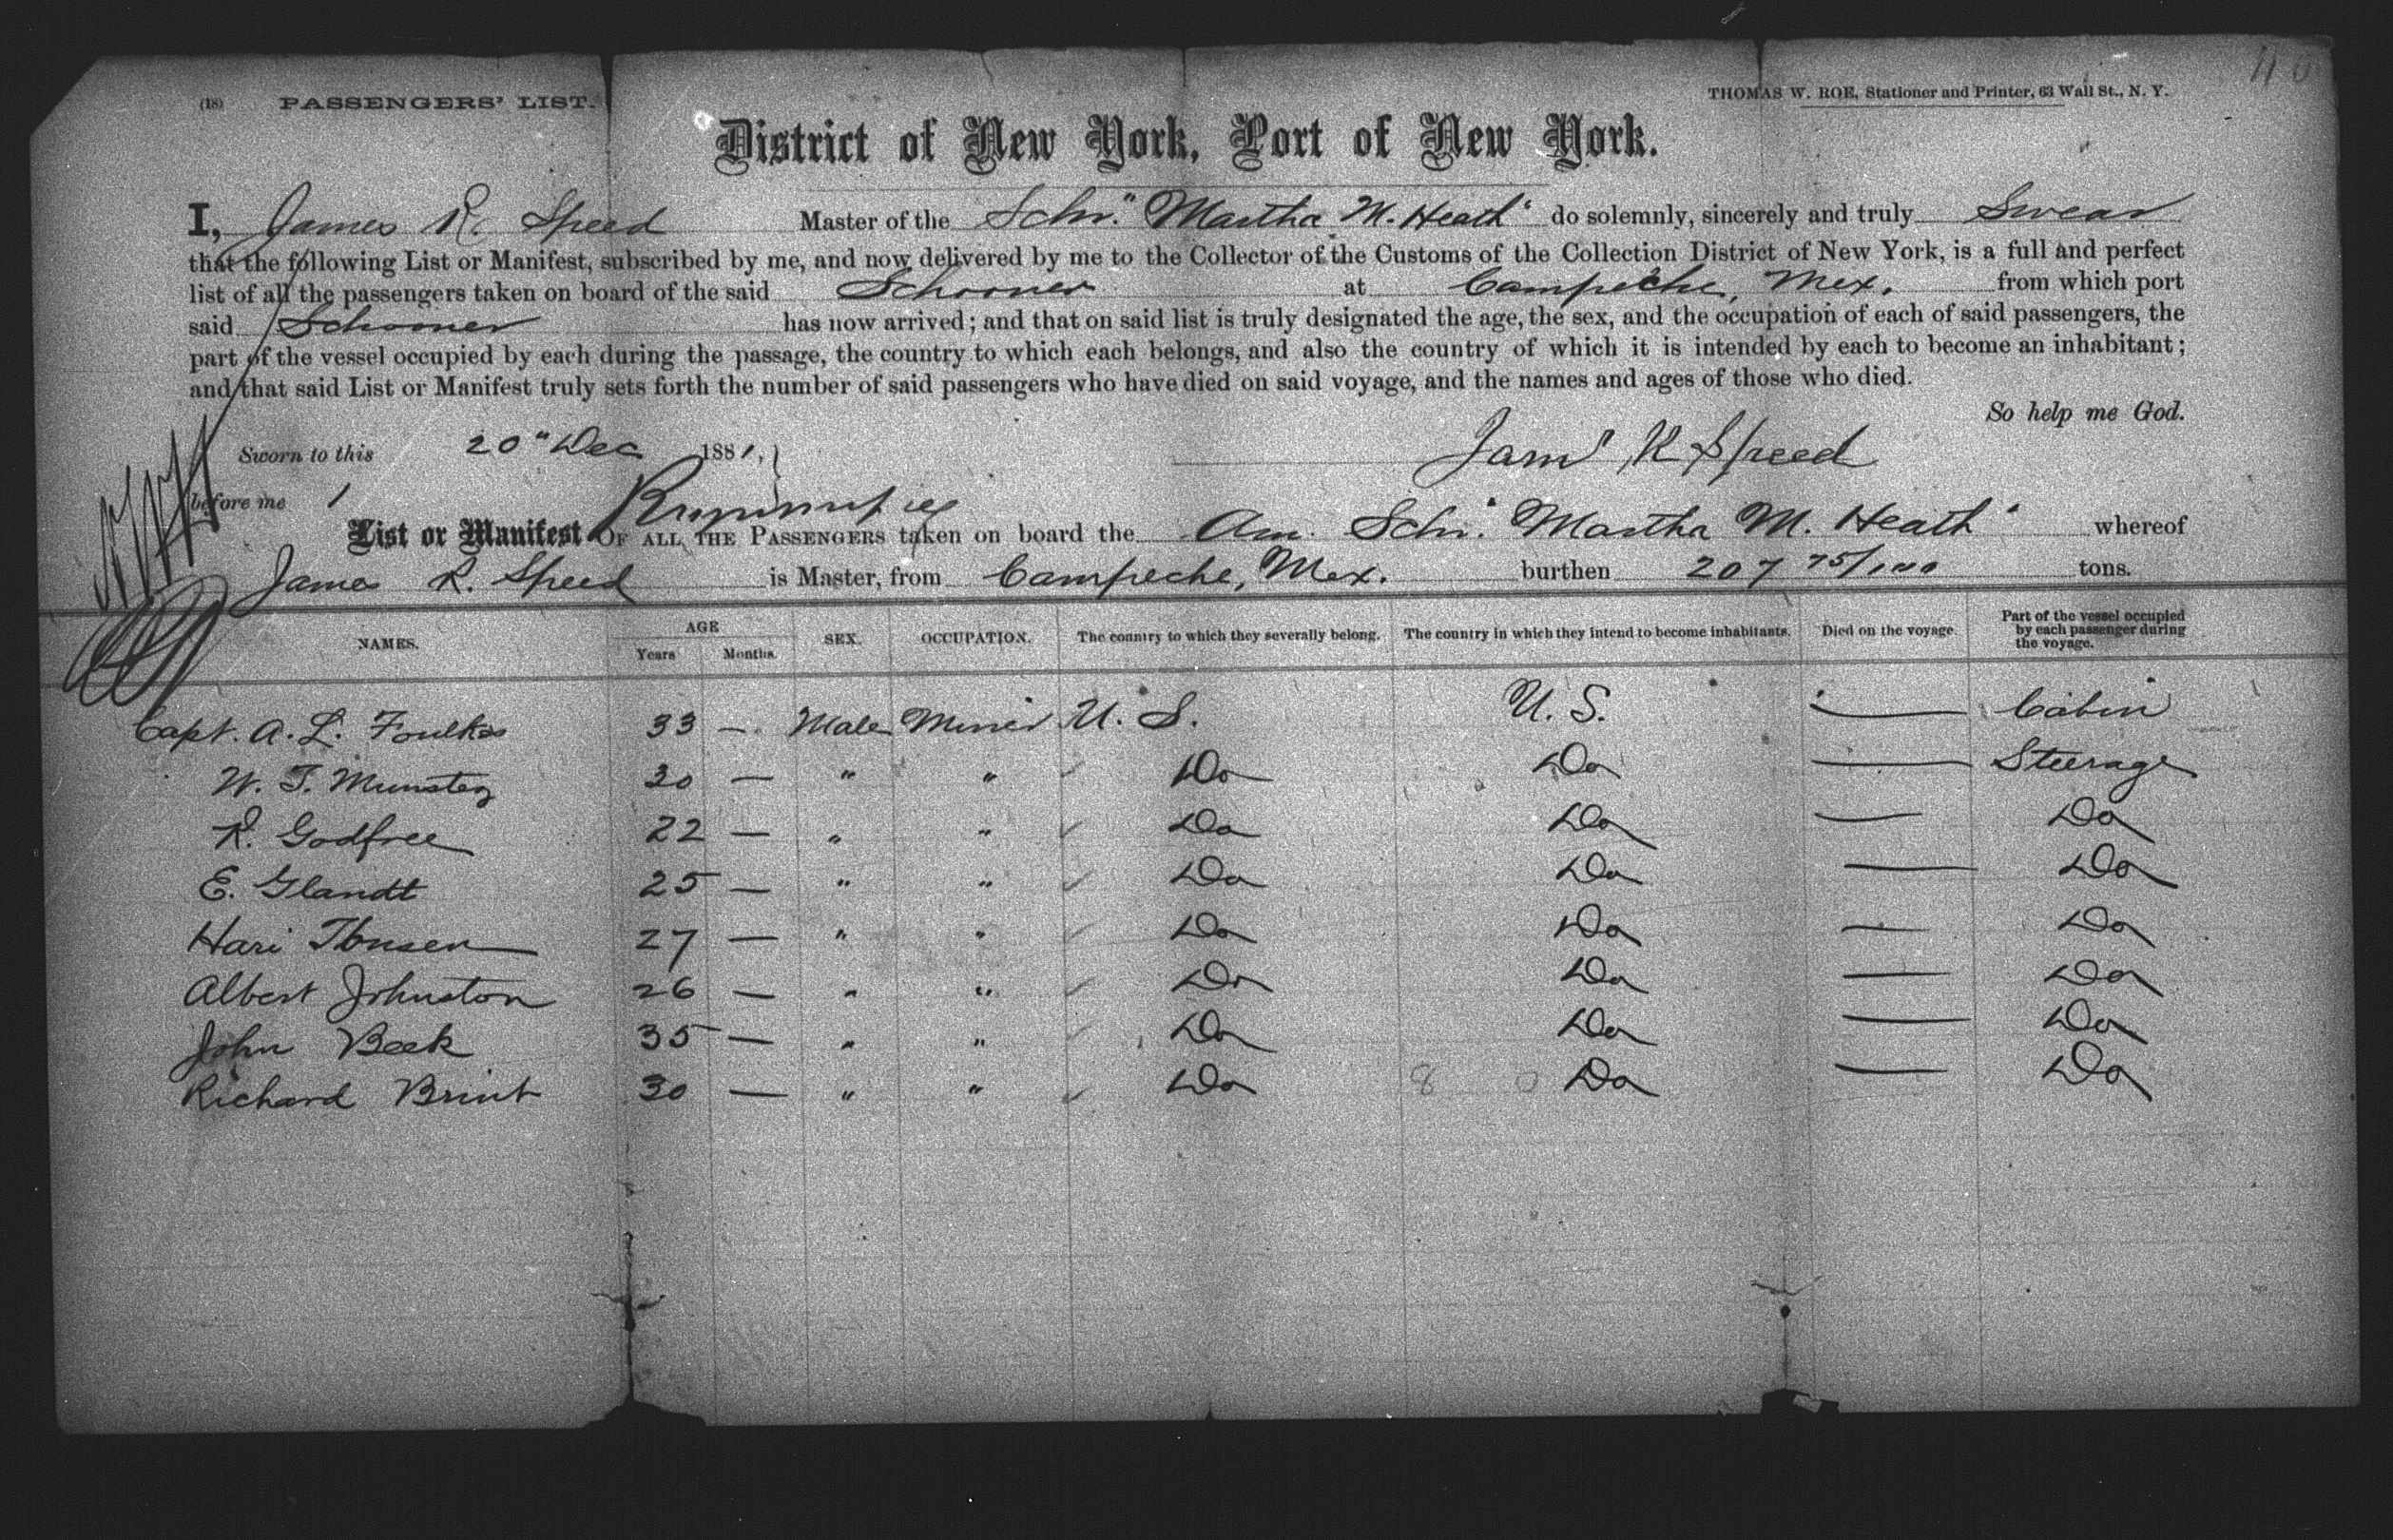 (18) PASSENGERS' LIST.
THOMAS W. ROE, Stationer and Printer, 63 Wall St., N. Y.
District of New York, Port of New York.
I, James R. Speed Master of the Schr. "Martha M. Heath" do solemnly, sincerely and truly Swear
that the following List or Manifest, subscribed by me, and now delivered by me to the Collector of the Customs of the Collection District of New York, is a full and perfect
list of all the passengers taken on board of the said Schooner at Campeche, Mex. from which port
said Schooner has now arrived; and that on said list is truly designated the age, the sex, and the occupation of each of said passengers, the
part of the vessel occupied by each during the passage, the country to which each belongs, and also the country of which it is intended by each to become an inhabitant;
and that said List or Manifest truly sets forth the number of said passengers who have died on said voyage, and the names and ages of those who died.
So help me God.
Sworn to this 20" Dec 1881,
Jams R Speed
before me
List or Manifest OF ALL THE PASSENGERS taken on board the Am. Schr. "Martha M. Heath" whereof
James R. Speed is Master, from Campeche, Mex. burthen 207 75/100 tons.
NAMES. AGE Years Months. SEX. OCCUPATION. The country to which they severally belong. The country in which they intend to become inhabitants. Died on the voyage. Part of the vessel occupied by each passenger during the voyage.
Capt. A. L. Foulkes 33 — Male Miner U. S. U. S. — Cabin
W. T. Munster 30 — " " Do Do — Steerage
R. Godfree 22 — " " Do Do — Do
E. Glandt 25 — " " Do Do — Do
Hari Ibnsen 27 — " " Do Do — Do
Albert Johnston 26 — " " Do Do — Do
John Beek 35 — " " Do Do — Do
Richard Brint 30 — " " Do 8 0 Do — Do